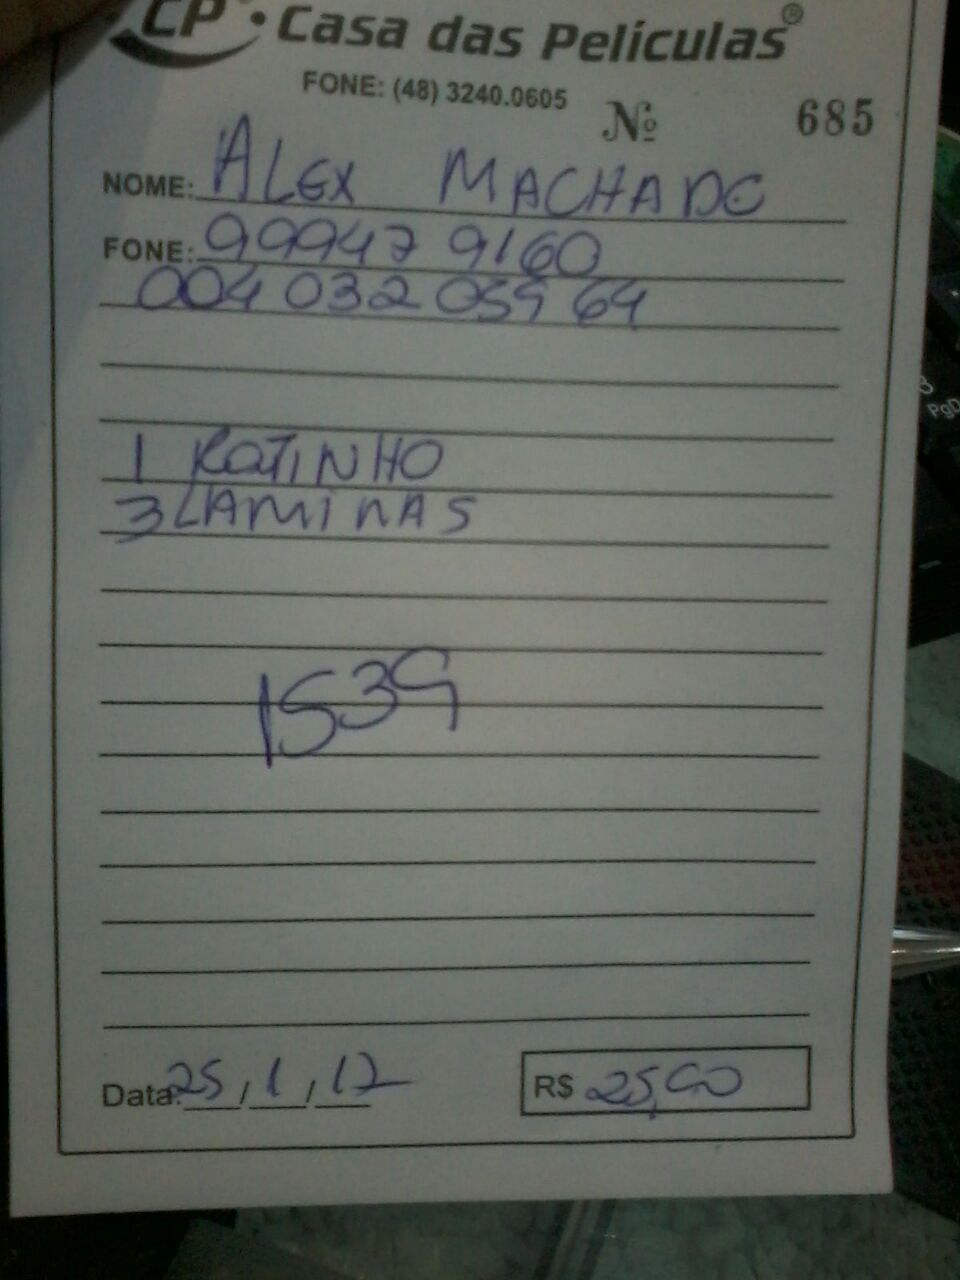 CP • Casa das Películas®
FONE: (48) 3240.0605
Nº 685
NOME: ALEX MACHADO
FONE: 99947 9160
004 032 059 64
1 RATINHO
3 LAMINAS
1539
Data: 25/1/17
R$ 25,00
PgD